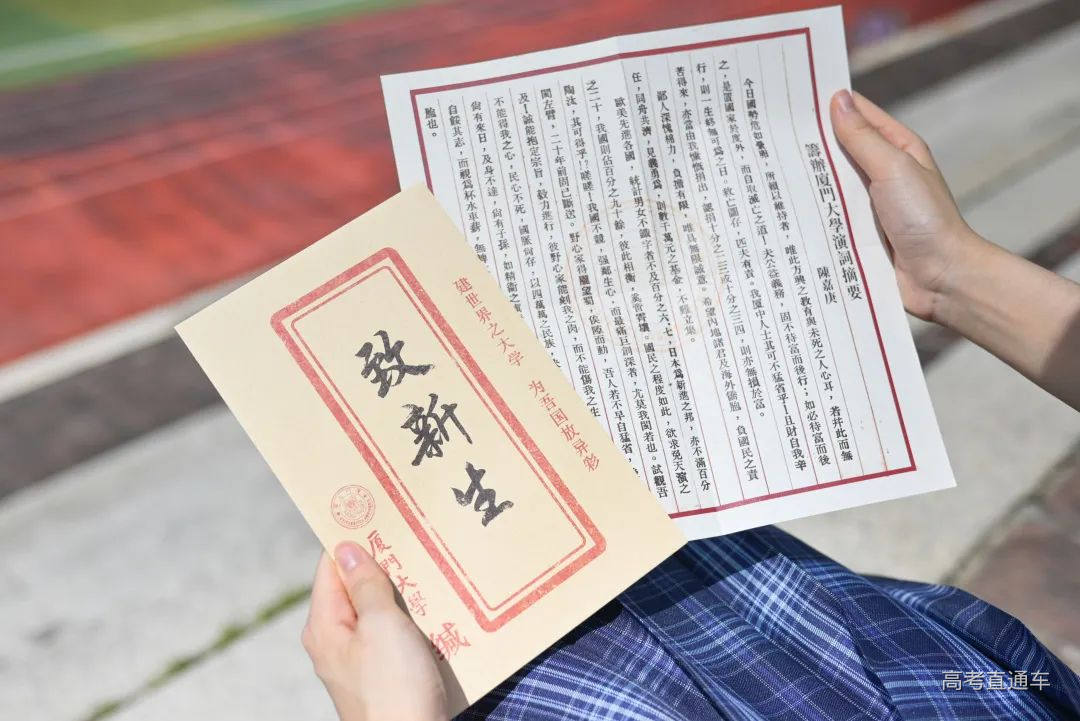 籌辦厦門大學演詞摘要
陳嘉庚
今日國勢危如纍卵，所賴以維持者，唯此方興之教育與未死之人心耳，若幷此而無
之，是置國家於度外，而自取滅亡之道！夫公益義務，固不待富而後行；如必待富而後
行，則一生終無可爲之日。救亡圖存，匹夫有責。我厦中人士其可不猛省乎！且財自我辛
苦得來，亦當由我慷慨捐出，認捐十分之二三或十分之三四，則亦無損於富。
鄙人深愧棉力，負擔有限，唯具無限誠意。希望內地諸君及海外僑胞，負國民之責
任，同舟共濟，見義勇爲，則數千萬元之基金，不難立集。
歐美先進各國，統計男女不識字者不及百分之六、七，日本爲新進之邦，亦不滿百分
之二十，我國則佔百分之九十餘，彼此相衡，奚啻霄壤。國民之程度如此，欲求免天演之
陶汰，其可得乎！？嗟嗟！我國不競，强鄰生心，而最痛巨創深者，尤莫我閩若也。試觀吾
閩左臂，二十年前固已斷送。野心家得隴望蜀，俟隙而動，吾人若不早自猛省，
及！誠能抱定宗旨，毅力進行，彼野心家能剜我之肉，而不能傷我之生
不能得我之心，民心不死，國脈尙存，以四萬萬之民族，
尙有來日，及身不達，尙有子孫，如精衞之
自餒其志，而視爲杯水車薪，無
胎也。
建世界之大学 为吾国放异彩
致新生
厦門大學
缄
高考直通车